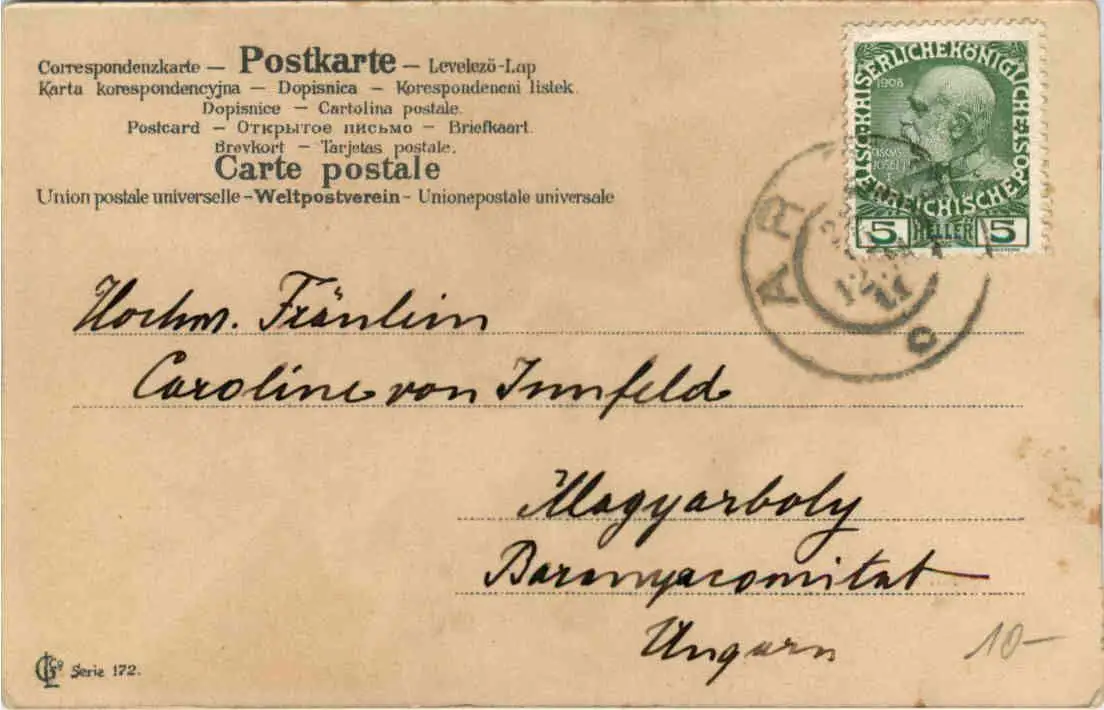 Correspondenzkarte — Postkarte — Levelező-Lap
Karta korespondencyjna — Dopisnica — Korespondencni listek.
Dopisnice — Cartolina postale.
Postcard — Открытое письмо — Briefkaart.
Brevkort — Tarjetas postale.
Carte postale
Union postale universelle - Weltpostverein - Unionepostale universale
KAISERLICHE KÖNIGLICHE ÖSTERREICHISCHE POST
1908
5 HELLER 5
Hochw. Fräulein
Caroline von Innfeld
Magyarboly
Baranyacomitat
Ungarn
10-
Serie 172.